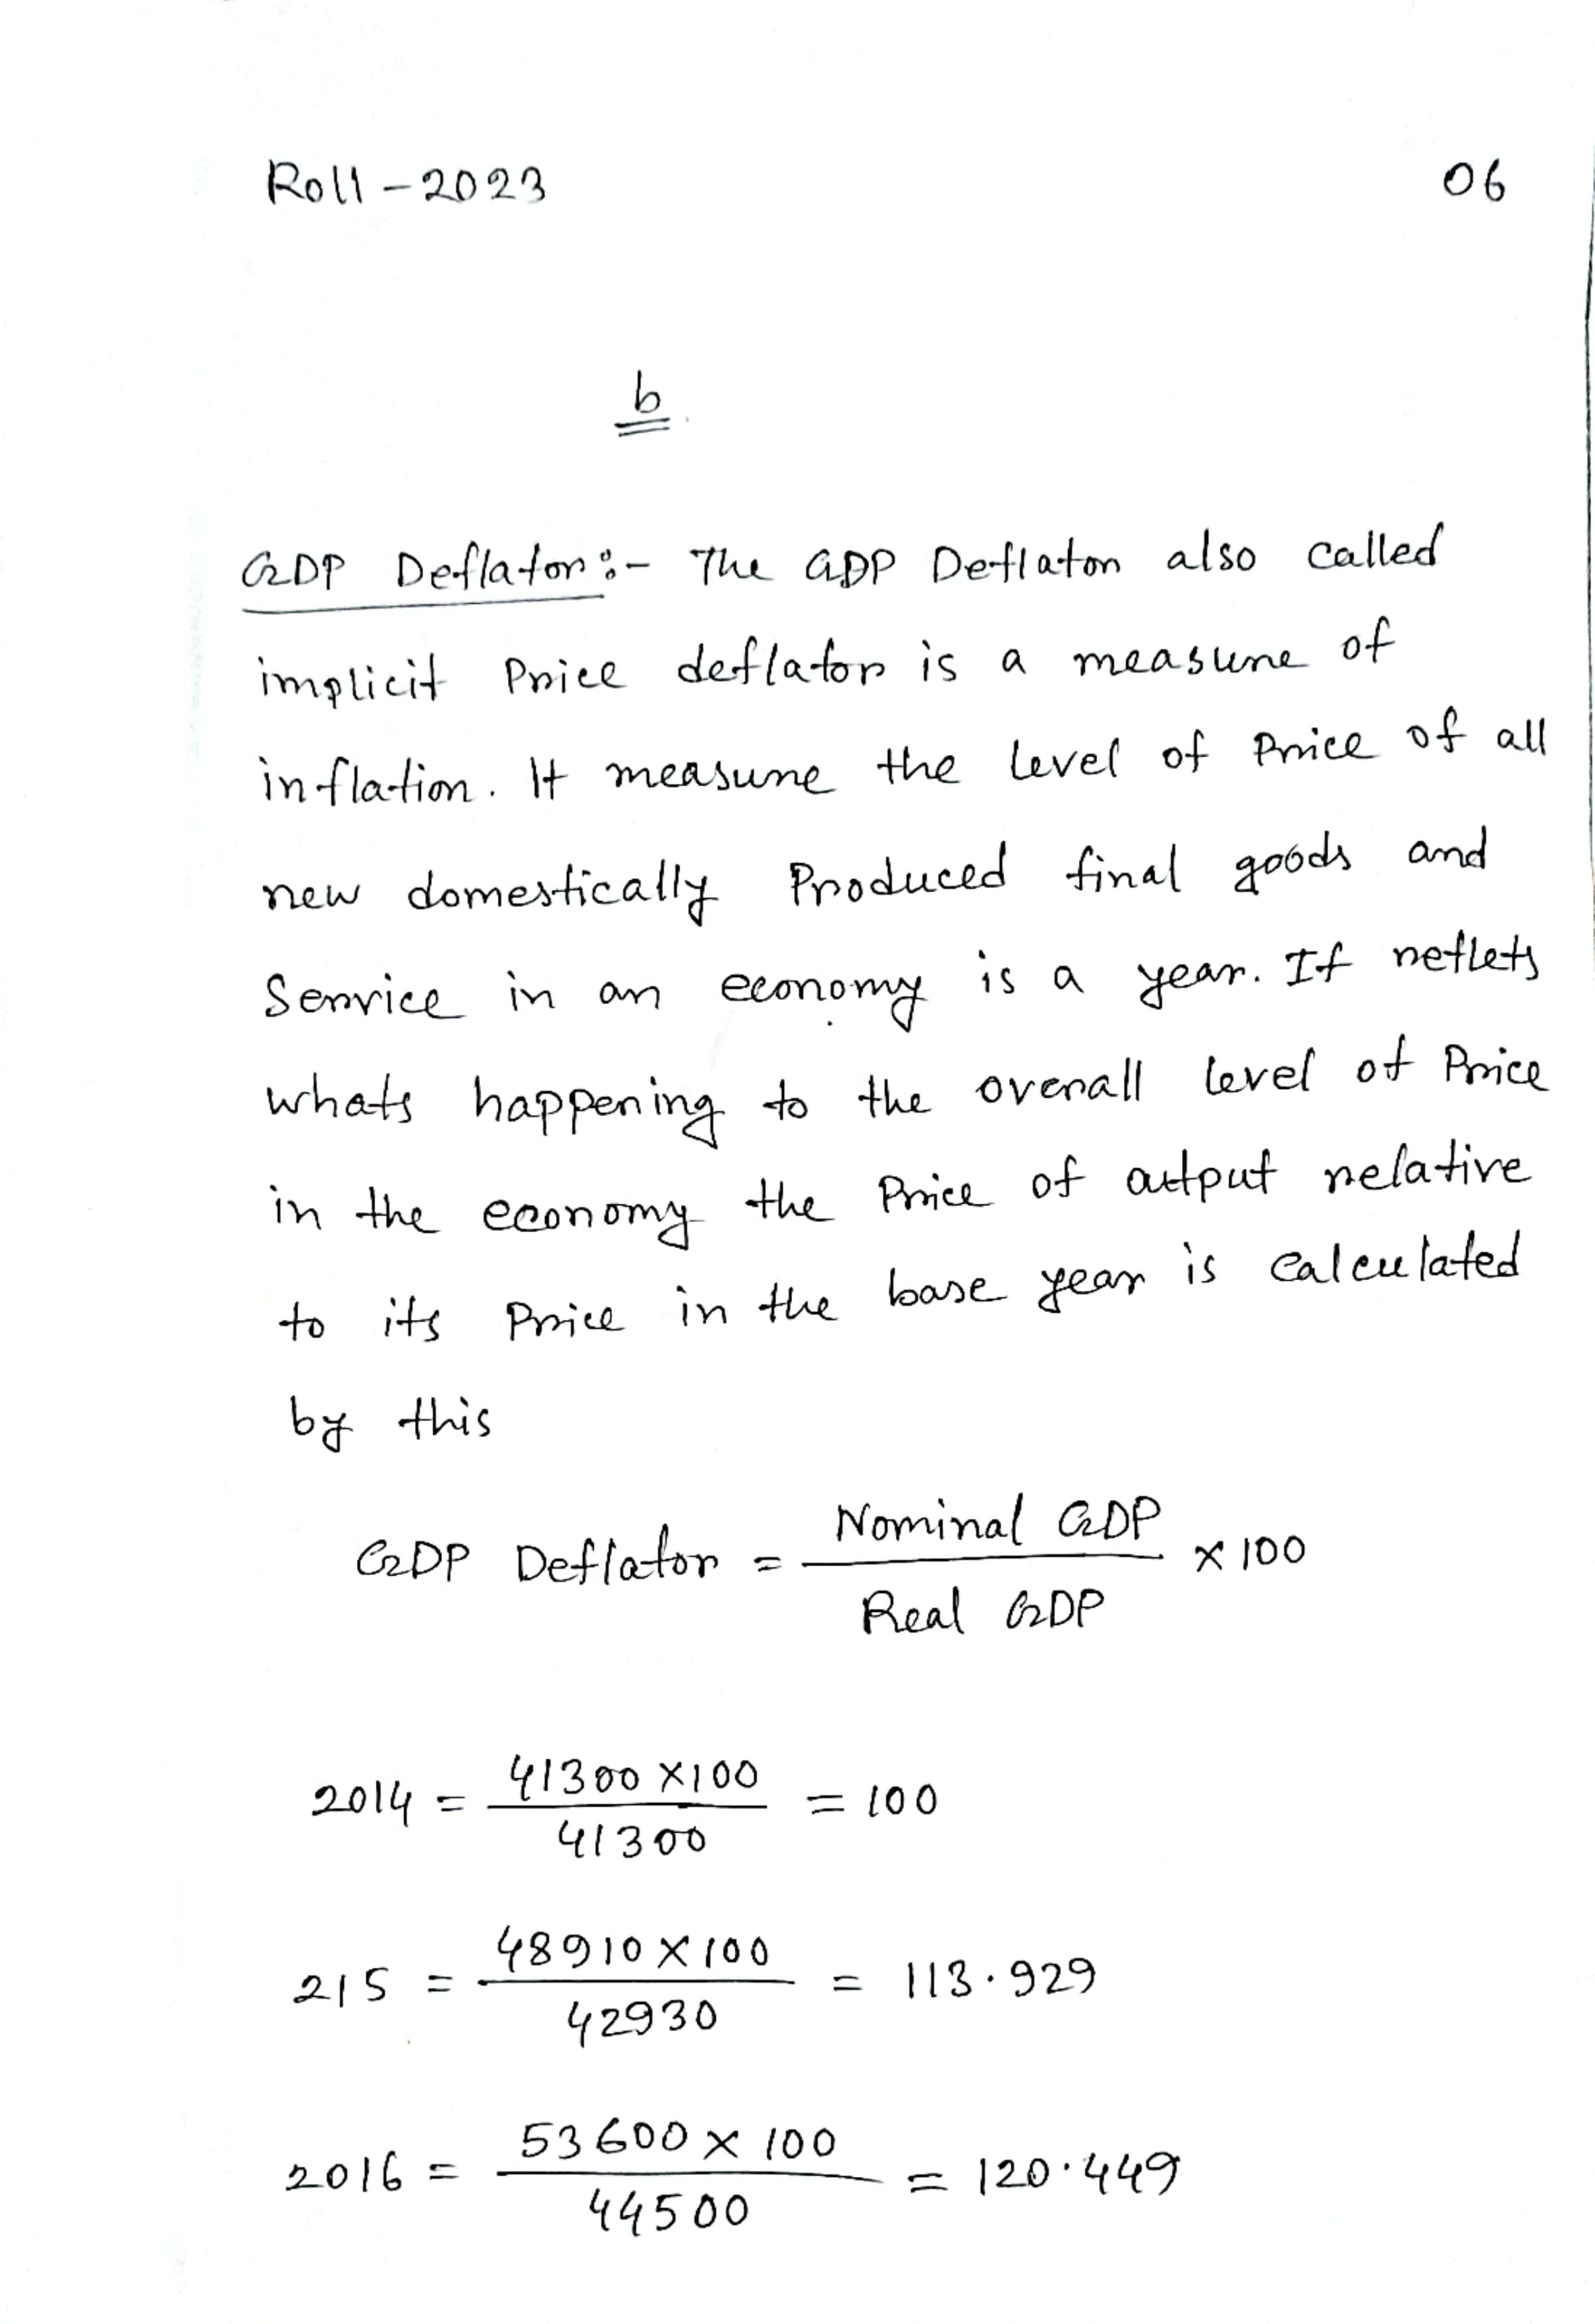 Roll - 2023 06
b
GDP Deflator :- The GDP Deflator also called
implicit Price deflator is a measure of
inflation. It measure the level of Price of all
new domestically Produced final goods and
Service in an economy is a year. It reflets
whats happening to the overall level of Price
in the economy the Price of output relative
to its Price in the base year is calculated
by this
GDP Deflator = Nominal GDP / Real GDP × 100
2014 = 41300 × 100 / 41300 = 100
215 = 48910 × 100 / 42930 = 113.929
2016 = 53600 × 100 / 44500 = 120.449